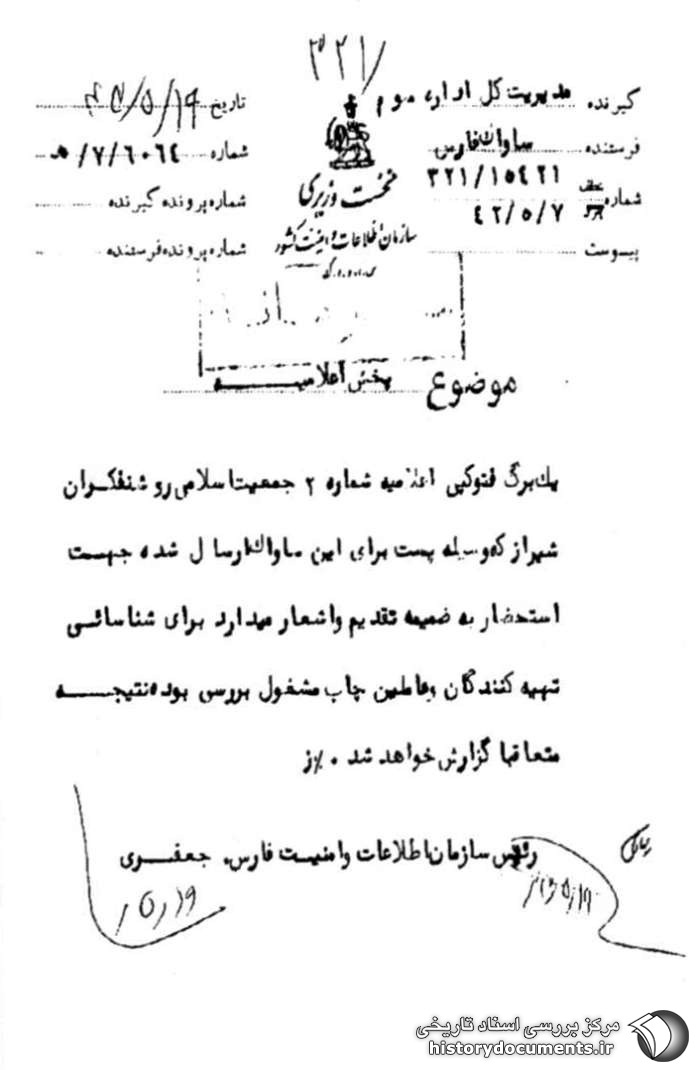 ۳۲۱/
گیرنده مدیریت کل اداره سوم
فرستنده ساواک فارس
شماره عطف ۳۲۱/۱۵۴۲۱
۴۲/۵/۷
پیوست
نخست وزیری
سازمان اطلاعات و امنیت کشور
س.ا.و.ا.ک
تاریخ ۴۲/۵/۱۹
شماره ۶۰۶۴/۷/ه
شماره پرونده گیرنده
شماره پرونده فرستنده
موضوع پخش اعلامیـــه
یک برگ فتوکپی اعلامیه شماره ۲ جمعیت اسلامی روشنفکران
شیراز که وسیله پست برای این ساواک ارسال شده جهت
استحضار به ضمیمه تقدیم و اشعار میدارد برای شناسائی
تهیه کنندگان و عاملین چاپ مشغول بررسی بوده نتیجه
متعاقبا گزارش خواهد شد ۰٪ز
رئیس سازمان اطلاعات و امنیت فارس. جعفری
۱۹/۵/
مرکز بررسی اسناد تاریخی
historydocuments.ir